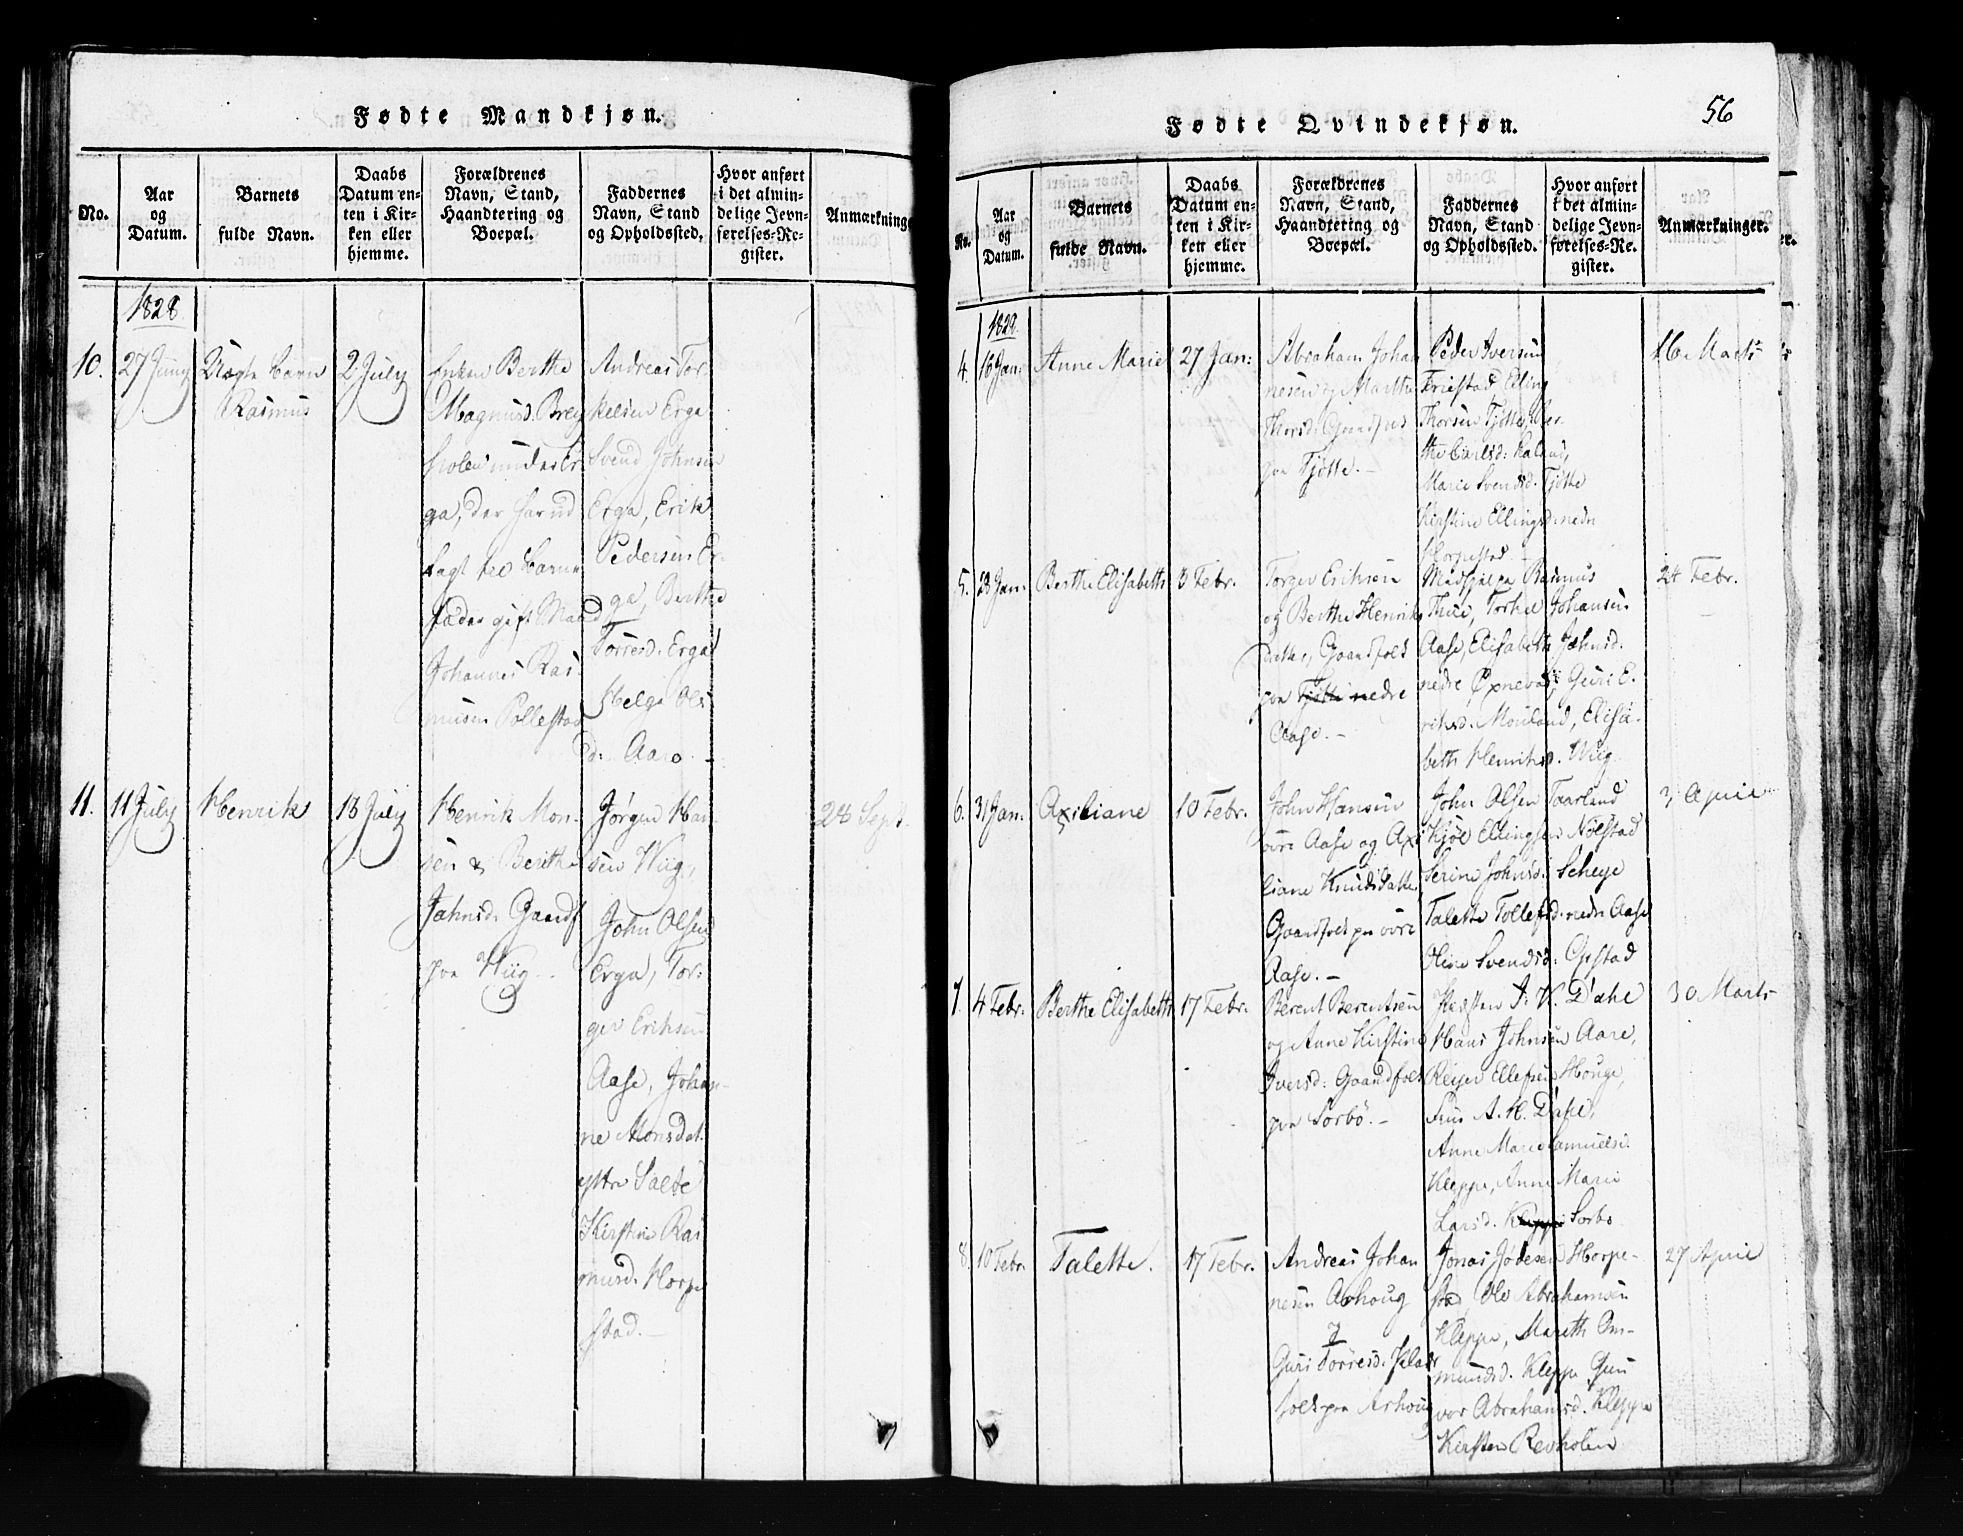 Fødte Mandkjøn.
No.
Aar
og
Datum.
Barnets
fulde Navn.
Daabs
Datum en-
ten i Kir-
ken eller
hjemme.
Forældrenes
Navn, Stand,
Haandtering og
Boepæl.
Faddernes
Navn, Stand
og Opholdssted.
Hvor anført
i det almin-
delige Jevn-
førelses-Re-
gister.
Anmærkninge
1828
10.
27 Juny
Uægte Barn
Rasmus
2 July
Enken Berthe
Magnusd. Brey
holen under Er
ga, der har ud
lagt til Barne
fader gift Mand
Johannes Ras
musen Pollestad
Andreas Tor
kelsen Erga
Svend Johnsen
Erga, Erik
Pedersen Er-
ga, Berthe
Torresd. Erga
Helga Ols
d. Aaro.
11.
11 July
Henrik
13 July
Henrik Mon-
sen & Berthe
Jahnsd. Gaardf
paa Wiig.
Jørgen Han-
sen Wiig,
John Olsen
Erga, Tor-
ger Eriksen
Aase, Johan-
ne Monsdat.
yttre Salte
Kirstine Ras
musd. Horpe
stad.
28 Sept.
56
Fødte Qvindekjøn.
No.
Aar
og
Datum.
Barnets
fulde Navn.
Daabs
Datum en-
ten i Kir-
ken eller
hjemme.
Forældrenes
Navn, Stand,
Haandtering og
Boepæl.
Faddernes
Navn, Stand
og Opholdssted.
Hvor anført
i det almin-
delige Jevn-
førelses-Re-
gister.
Anmærkninger.
1829
4.
16 Jan:
Anne Marie
27 Jan:
Abraham Johan
nesen og Marthe
Thorsd: Gaardfolk
paa Tjøtte.
Peder Iversen
Friestad Elling
Thorsen Tjøtte, Ber-
the Carlsd: Kaland,
Marie Svendsd. Tjøtte
Kirstine Ellingsd: nedre
Horpestad
16 Marts
5.
28 Jan:
Berthe Elisabeth
3 Febr.
Torger Eriksen
og Berthe Henriks
datter, Gaardfolk
paa Tjøtte nedre
Aase.
Rasmus
Thue, Torkel Johansen
Aase, Elisabeth Johnsd.
nedre Øxnevad, Guri E-
riksd. Mouland, Elisa-
beth Henriksd. Wiig
24 Febr.
6.
31 Jan:
Axiliane
10 Febr.
John Hansen
øvre Aase og Axi
liane Knudsdatter
Gaardfolk paa øvre
Aase.
John Olsen Taarland
Kjøl Ellingsen Nølstad
Serine Johnsd: Scheye
Talette Tollefsd: nedre Aase
Oline Svendsd: Opstad
3 April
7.
4 Febr.
Berthe Elisabeth
17 Febr.
Berent Berentsen
og Anne Kirstine
Iversd: Gaardfolk
paa Sørbø.
Præsten J: K. Dahl
Hans Johnsen Aare,
Reier Ellefsen Houge,
Frue A. H. Dahl,
Anne Marie Samuelsd.
Kleppe, Anne Marie
Larsd. Kleppe Sørbø
30 Marts
8.
10 Febr.
Talette.
17 Febr.
Andreas Johan
nesen Aahoug
&
Guri Torresd. Plads
folk paa Arhoug
Jonas Jødesen Horpe-
stad, Ole Abrahamsen
Kleppe, Mareth Om-
mundsd. Kleppe Gun
vor Abrahamsd. Kleppe
Kirsten Revholen
27 April